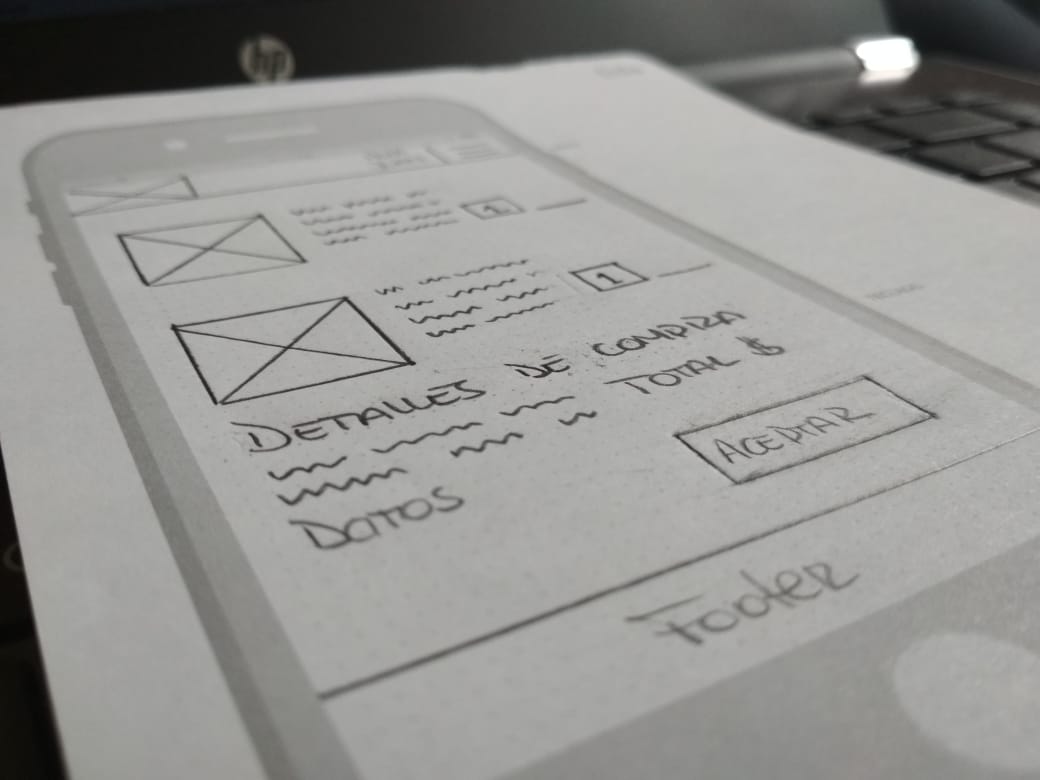 hp
1
1
DETALLES DE COMPRA
TOTAL $
ACEPTAR
DATOS
Footer